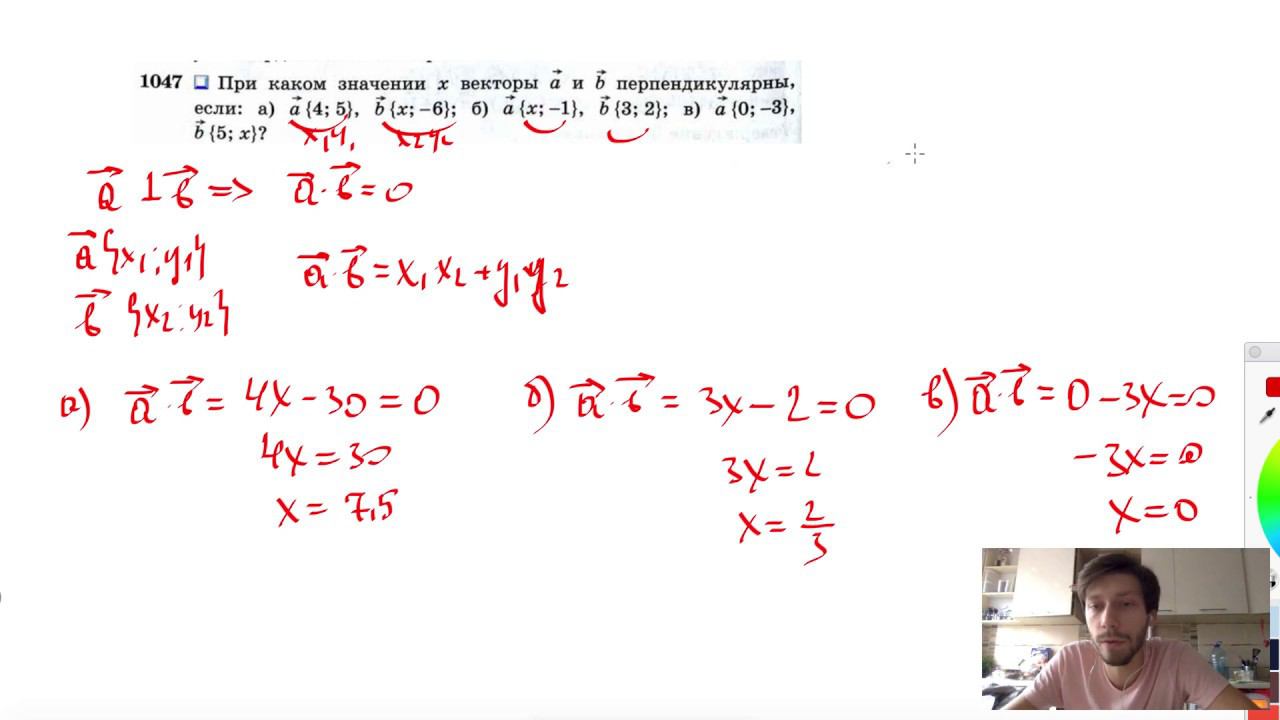 1047 При каком значении x векторы a⃗ и b⃗ перпендикулярны,
если: а) a⃗ {4; 5}, b⃗ {x; −6}; б) a⃗ {x; −1}, b⃗ {3; 2}; в) a⃗ {0; −3},
b⃗ {5; x}?
x₁y₁ x₂y₂
a⃗ ⊥ b⃗ => a⃗·b⃗ = 0
a⃗ {x₁; y₁}
a⃗·b⃗ = x₁x₂ + y₁y₂
b⃗ {x₂; y₂}
а) a⃗·b⃗ = 4x − 30 = 0
4x = 30
x = 7,5
б) a⃗·b⃗ = 3x − 2 = 0
3x = 2
x = 2/3
в) a⃗·b⃗ = 0 − 3x = 0
−3x = 0
x = 0